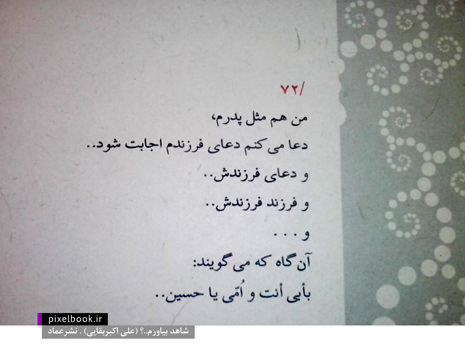 /۷۲
من هم مثل پدرم،
دعا می‌کنم دعای فرزندم اجابت شود..
و دعای فرزندش..
و فرزند فرزندش..
و . . .
آن گاه که می‌گویند:
بأبی أنت و اُمّی یا حسین..
pixelbook.ir
شاهد بیاورم..؟ (علی اکبربقایی) . نشرعماد